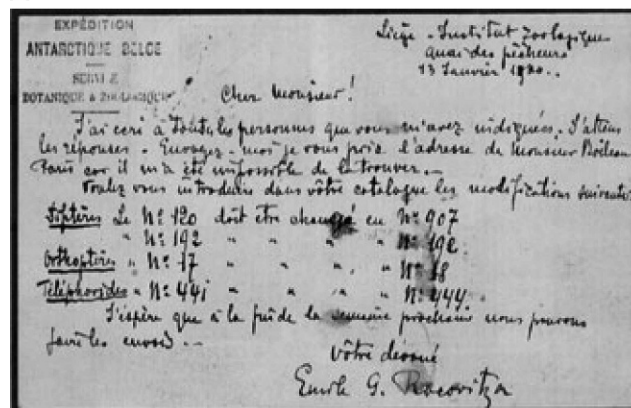 EXPÉDITION
ANTARCTIQUE BELGE
SERVICE
BOTANIQUE & ZOOLOGIQUE
Liège - Institut Zoologique
Quai des pêcheurs
13 Janvier 1900..
Cher Monsieur!
J'ai ecri à toutes les personnes que vous m'avez indiquées. J'attens
les réponses. Envoyez-moi je vous prie l'adresse de Monsieur Boileau
Paris car il m'a été impossible de la trouver.
Voulez vous introduire dans vôtre catalogue les modifications suivantes
Diptères Le No: 120 doit être changé en No: 907
" No: 192 " " " " No:
Orthoptères " No: 17 " " " " No: 18
Téléphorides " No: 441 " " " " No: 444.
J'espère que à la fin de la semaine prochaine nous pouvons
faire les envois..
vôtre dévoué
Emile G. Racovitza